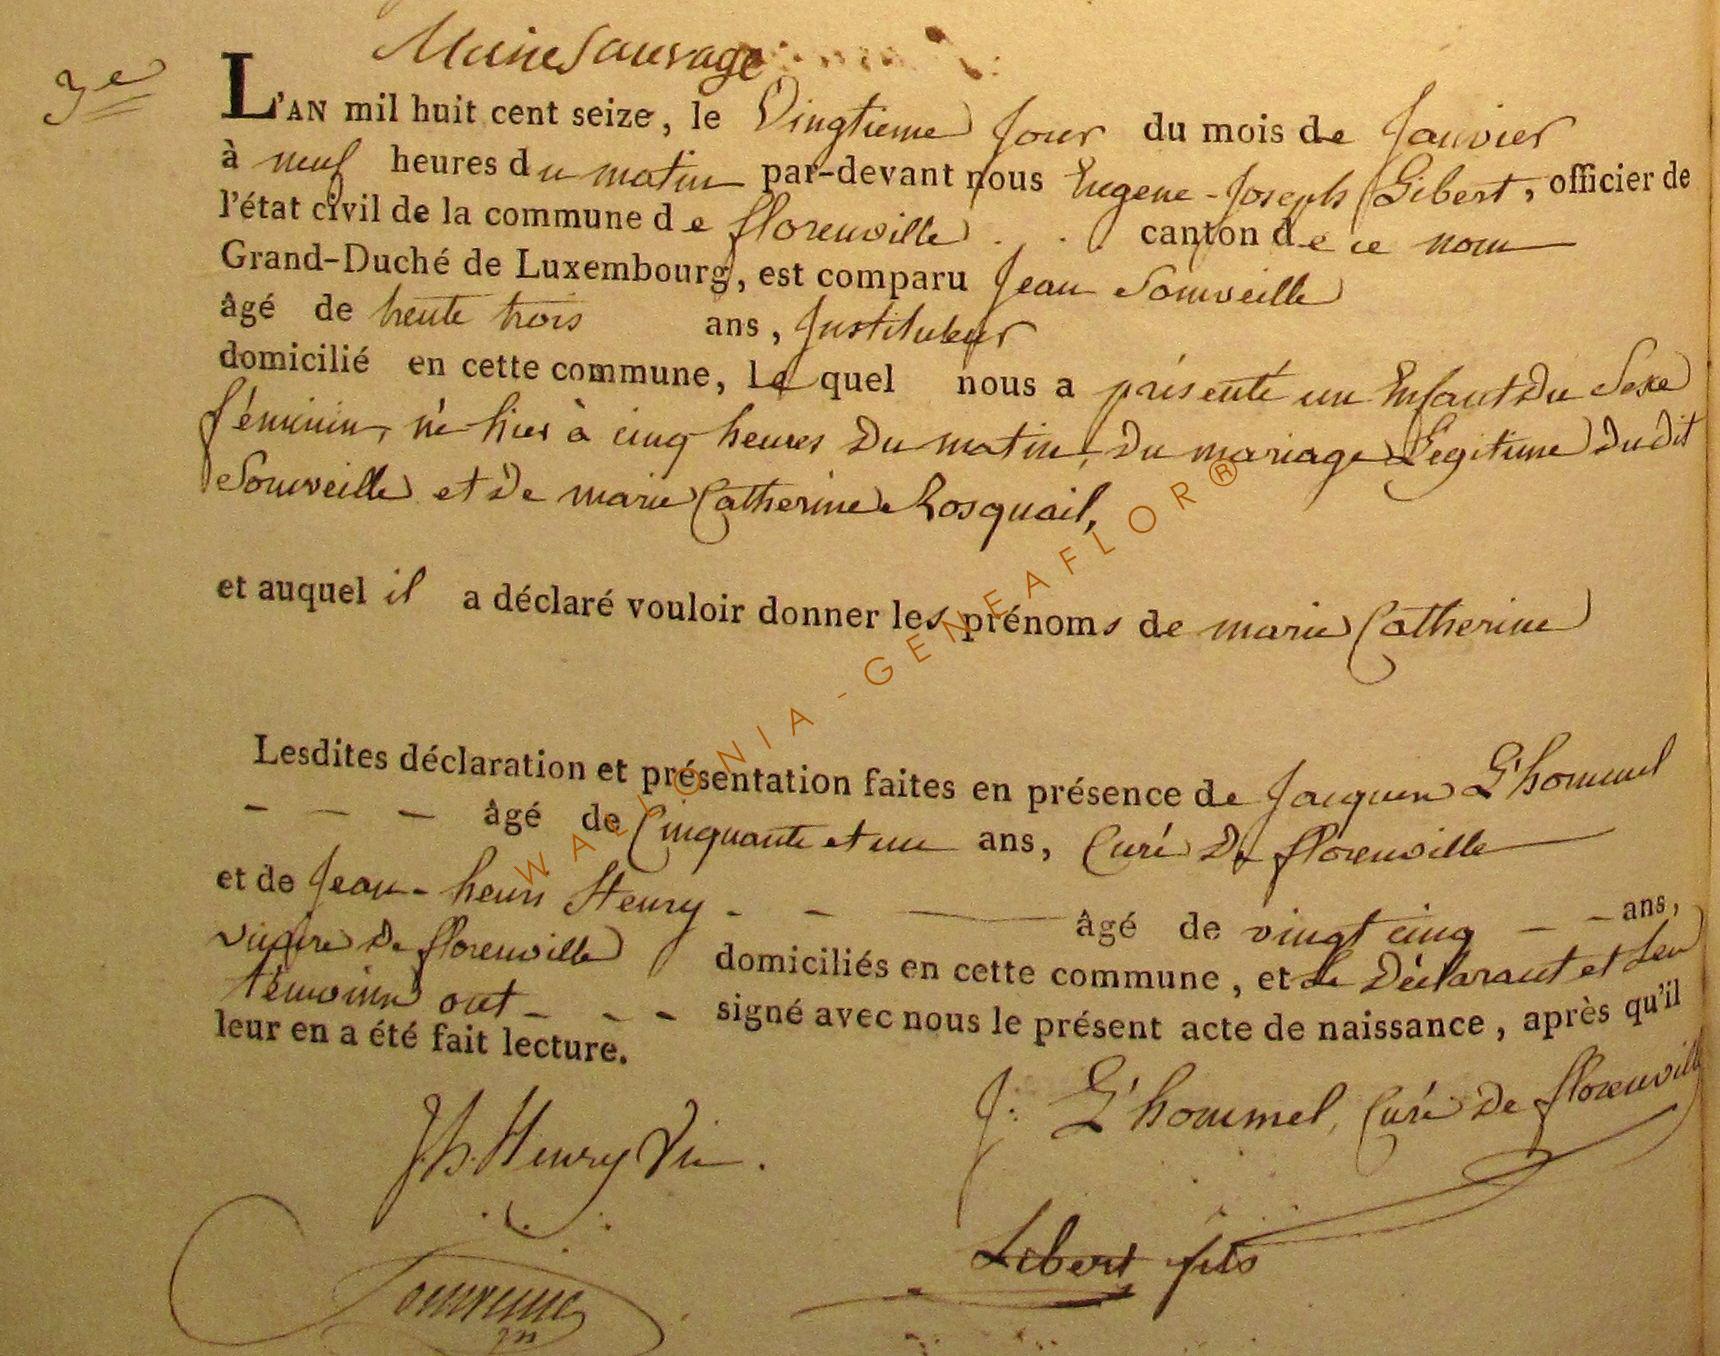 Marie Sauvage
3e
L'AN mil huit cent seize, le Vingtieme Jour du mois de Janvier
à neuf heures du matin par-devant nous Eugene-Joseph Libert, officier de
l'état civil de la commune de florenville canton de ce nom
Grand-Duché de Luxembourg, est comparu Jean Sonveille
âgé de trente trois ans, Instituteur
domicilié en cette commune, Lequel nous a présenté un Enfant Du Sexe
féminin, né hier à cinq heures Du matin, Du mariage Legitime Dudit
Sonveille et De marie Catherine Rosquail,
et auquel il a déclaré vouloir donner les prénoms de marie Catherine
Lesdites déclaration et présentation faites en présence de Jacques L'hommel
âgé de Cinquante et un ans, Curé De florenville
et de Jean-henri Henry âgé de vingt cinq ans,
vicaire De florenville domiciliés en cette commune, et Le Déclarant et Les
témoins ont signé avec nous le présent acte de naissance, après qu'il
leur en a été fait lecture.
J: L'hommel, Curé De florenville
J.h. Henry Vic.
Libert fils
WALLONIA-GENEAFLOR®